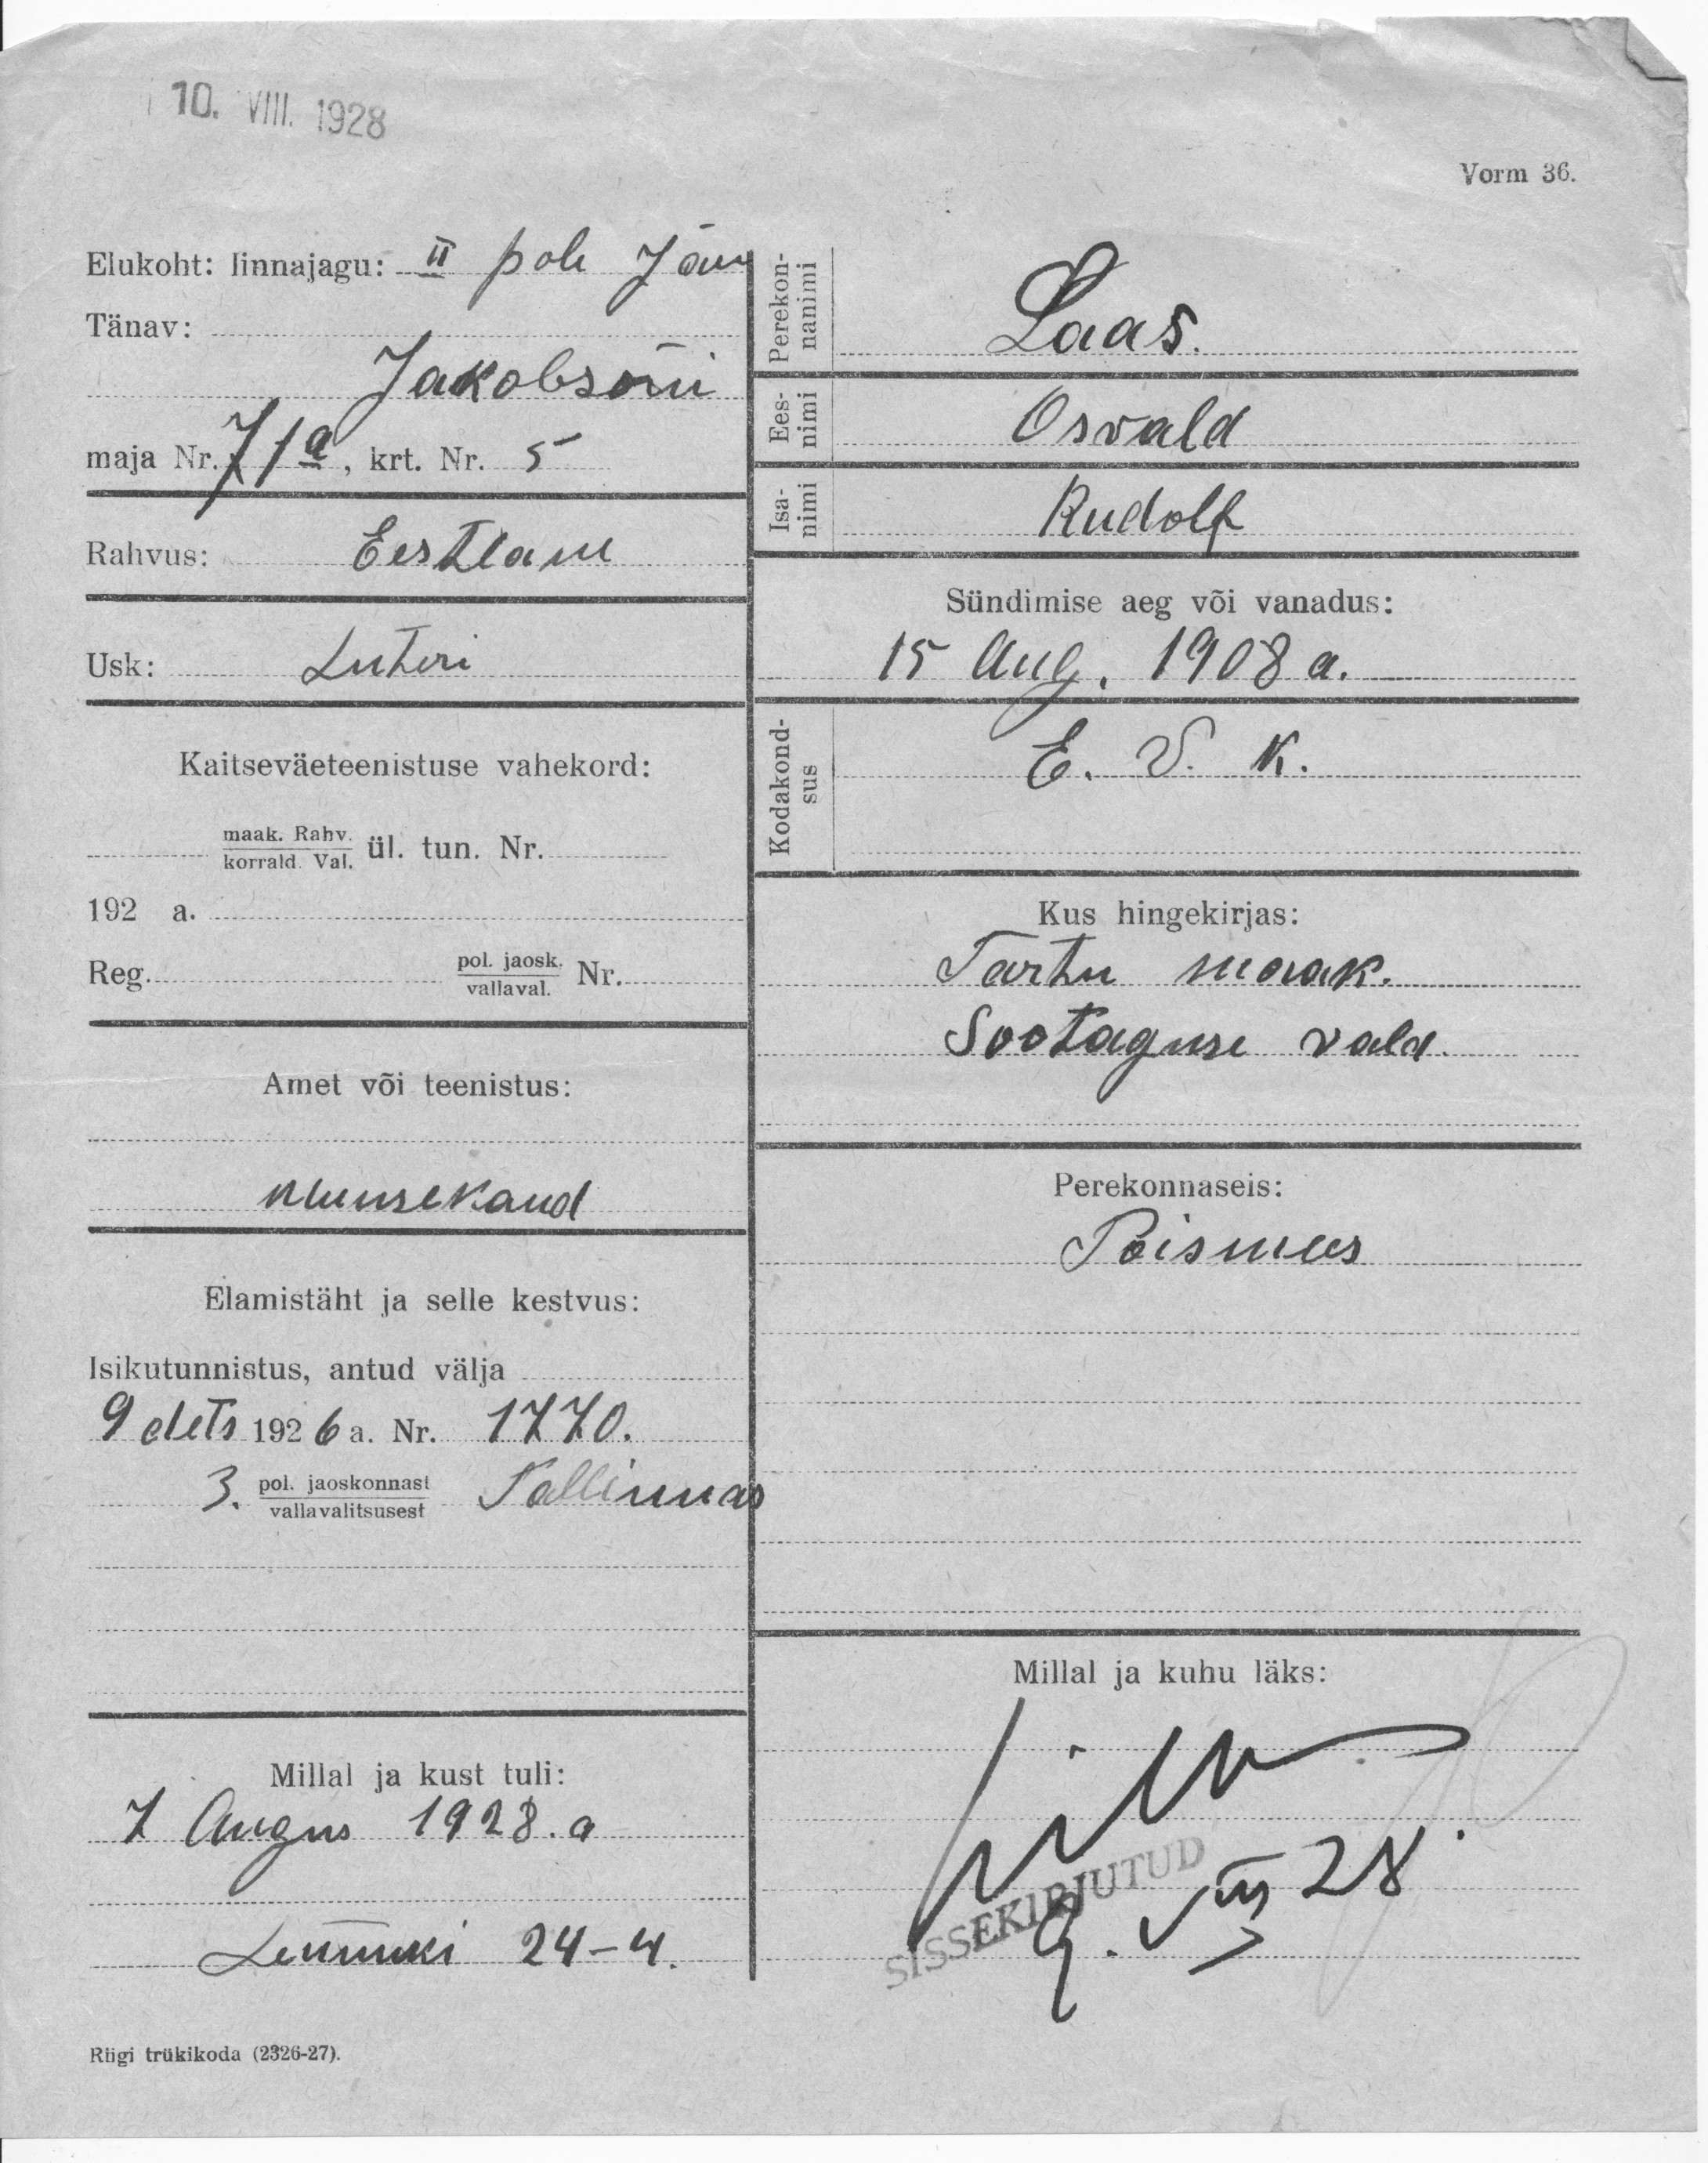 10. VIII. 1928
Vorm 36.
Elukoht: linnajagu: II pol. Jäusk
Tänav:
Jakobsoni
maja Nr. 71a, krt. Nr. 5
Rahvus: Eestlane
Usk: Luteri
Kaitseväeteenistuse vahekord:
maak. Rahv.
korrald. Val. ül. tun. Nr.
192 a.
Reg. pol. jaosk.
vallaval. Nr.
Amet või teenistus:
muusekand
Elamistäht ja selle kestvus:
Isikutunnistus, antud välja
9 dets 1926 a. Nr. 1770.
3. pol. jaoskonnast
vallavalitsusest Tallinnas
Millal ja kust tuli:
7 Augus 1928. a
24-4.
Riigi trükikoda (2326-27).
Perekon-
nanimi Laas.
Ees-
nimi Osvald
Isa-
nimi Rudolf
Sündimise aeg või vanadus:
15 Aug. 1908 a.
Kodakond-
sus E. V. K.
Kus hingekirjas:
Tartu maak.
Sootaguse vald.
Perekonnaseis:
Poismees
Millal ja kuhu läks:
SISSEKIRJUTUD
9. VIII 28.